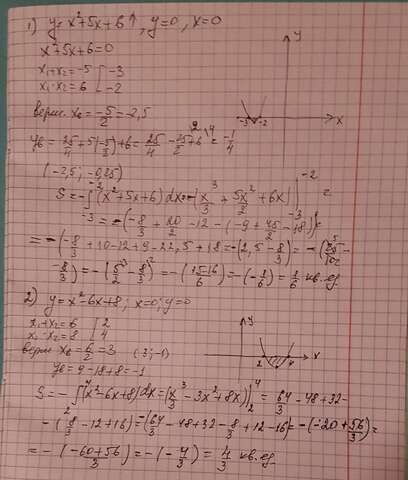 1) y=x²+5x+6↑, y=0, x=0
x²+5x+6=0
x₁+x₂=-5 | -3
x₁·x₂=6 | -2
верш. x₆=-5/2=-2,5
y₆=25/4+5(-5/2)+6=25/4-25/2+6=-1/4
(-2,5; -0,25)
y
x
-3 -2
S=-∫₋₃⁻²(x²+5x+6)dx=-(x³/3+5x²/2+6x)|₋₃⁻²=
=-(-8/3+20/2-12-(-9+45/2-18))=
=-(-8/3+10-12+9-22,5+18=-(2,5-8/3)=-(25/10-
8/3)=-(5/2-8/3)=-(15-16/6)=-(-1/6)=1/6 кв.ед.
2) y=x²-6x+8; x=0; y=0
x₁+x₂=6 | 2
x₁·x₂=8 | 4
верш x₆=6/2=3 (3;-1)
y₆=9-18+8=-1
y
x
2 4
S=-∫₂⁴(x²-6x+8)dx=(x³/3-3x²+8x)|₂⁴=64/3-48+32-
-(8/3-12+16)=-(64/3-48+32-8/3+12-16)=-(-20+56/3)=
=-(-60+56/3)=-(-4/3)=4/3 кв.ед